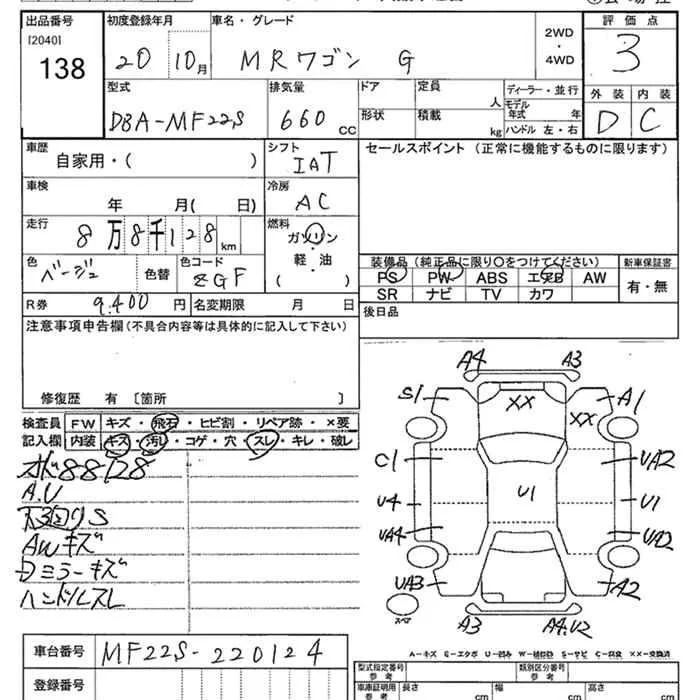 出品番号 初度登録年月 車名・グレード 2WD・4WD 評価点
[2040] 138 20 10月 MRワゴン G 3
型式 排気量 ドア 定員 人 ディーラー・並行 外装 内装
DBA-MF22S 660 CC 形状 積載 kg モデル年式 年 ハンドル 左・右 D C
車歴 シフト セールスポイント (正常に機能するものに限ります)
自家用・( ) IAT
車検 冷房
年 月( 日) AC
走行 燃料
8万8千128km ガソリン・軽油・( )
色 色替 色コード 装備品(純正品に限り○をつけてください) 新車保証書
ベージュ ZGF PS PW ABS エアB AW 有・無
SR ナビ TV カワ
R券 9,400 円 名変期限 月 日 後日品
注意事項申告欄(不具合内容等は具体的に記入して下さい)
修復歴 有 〔箇所 〕
検査員 FW キズ・飛石・ヒビ割・リペア跡・×要
記入欄 内装 キズ・汚レ・コゲ・穴・スレ・キレ・破レ
88128
A.U
下回りS
AWキズ
Dミラーキズ
ハンドルスレ
A4 A3
S1 XX XX A1
C1 UA2
U4 U1 U1
UA4 UA2
UA3 A2
スペア A3 A4.U2
A-キズ G-エクボ U-凹み W-補修跡 S-サビ C-腐食 XX-交換済
車台番号 MF22S-220124
登録番号
型式指定番号 参考 類別区分番号 参考
車庫証明用 参考 長さ cm 幅 cm 高さ cm